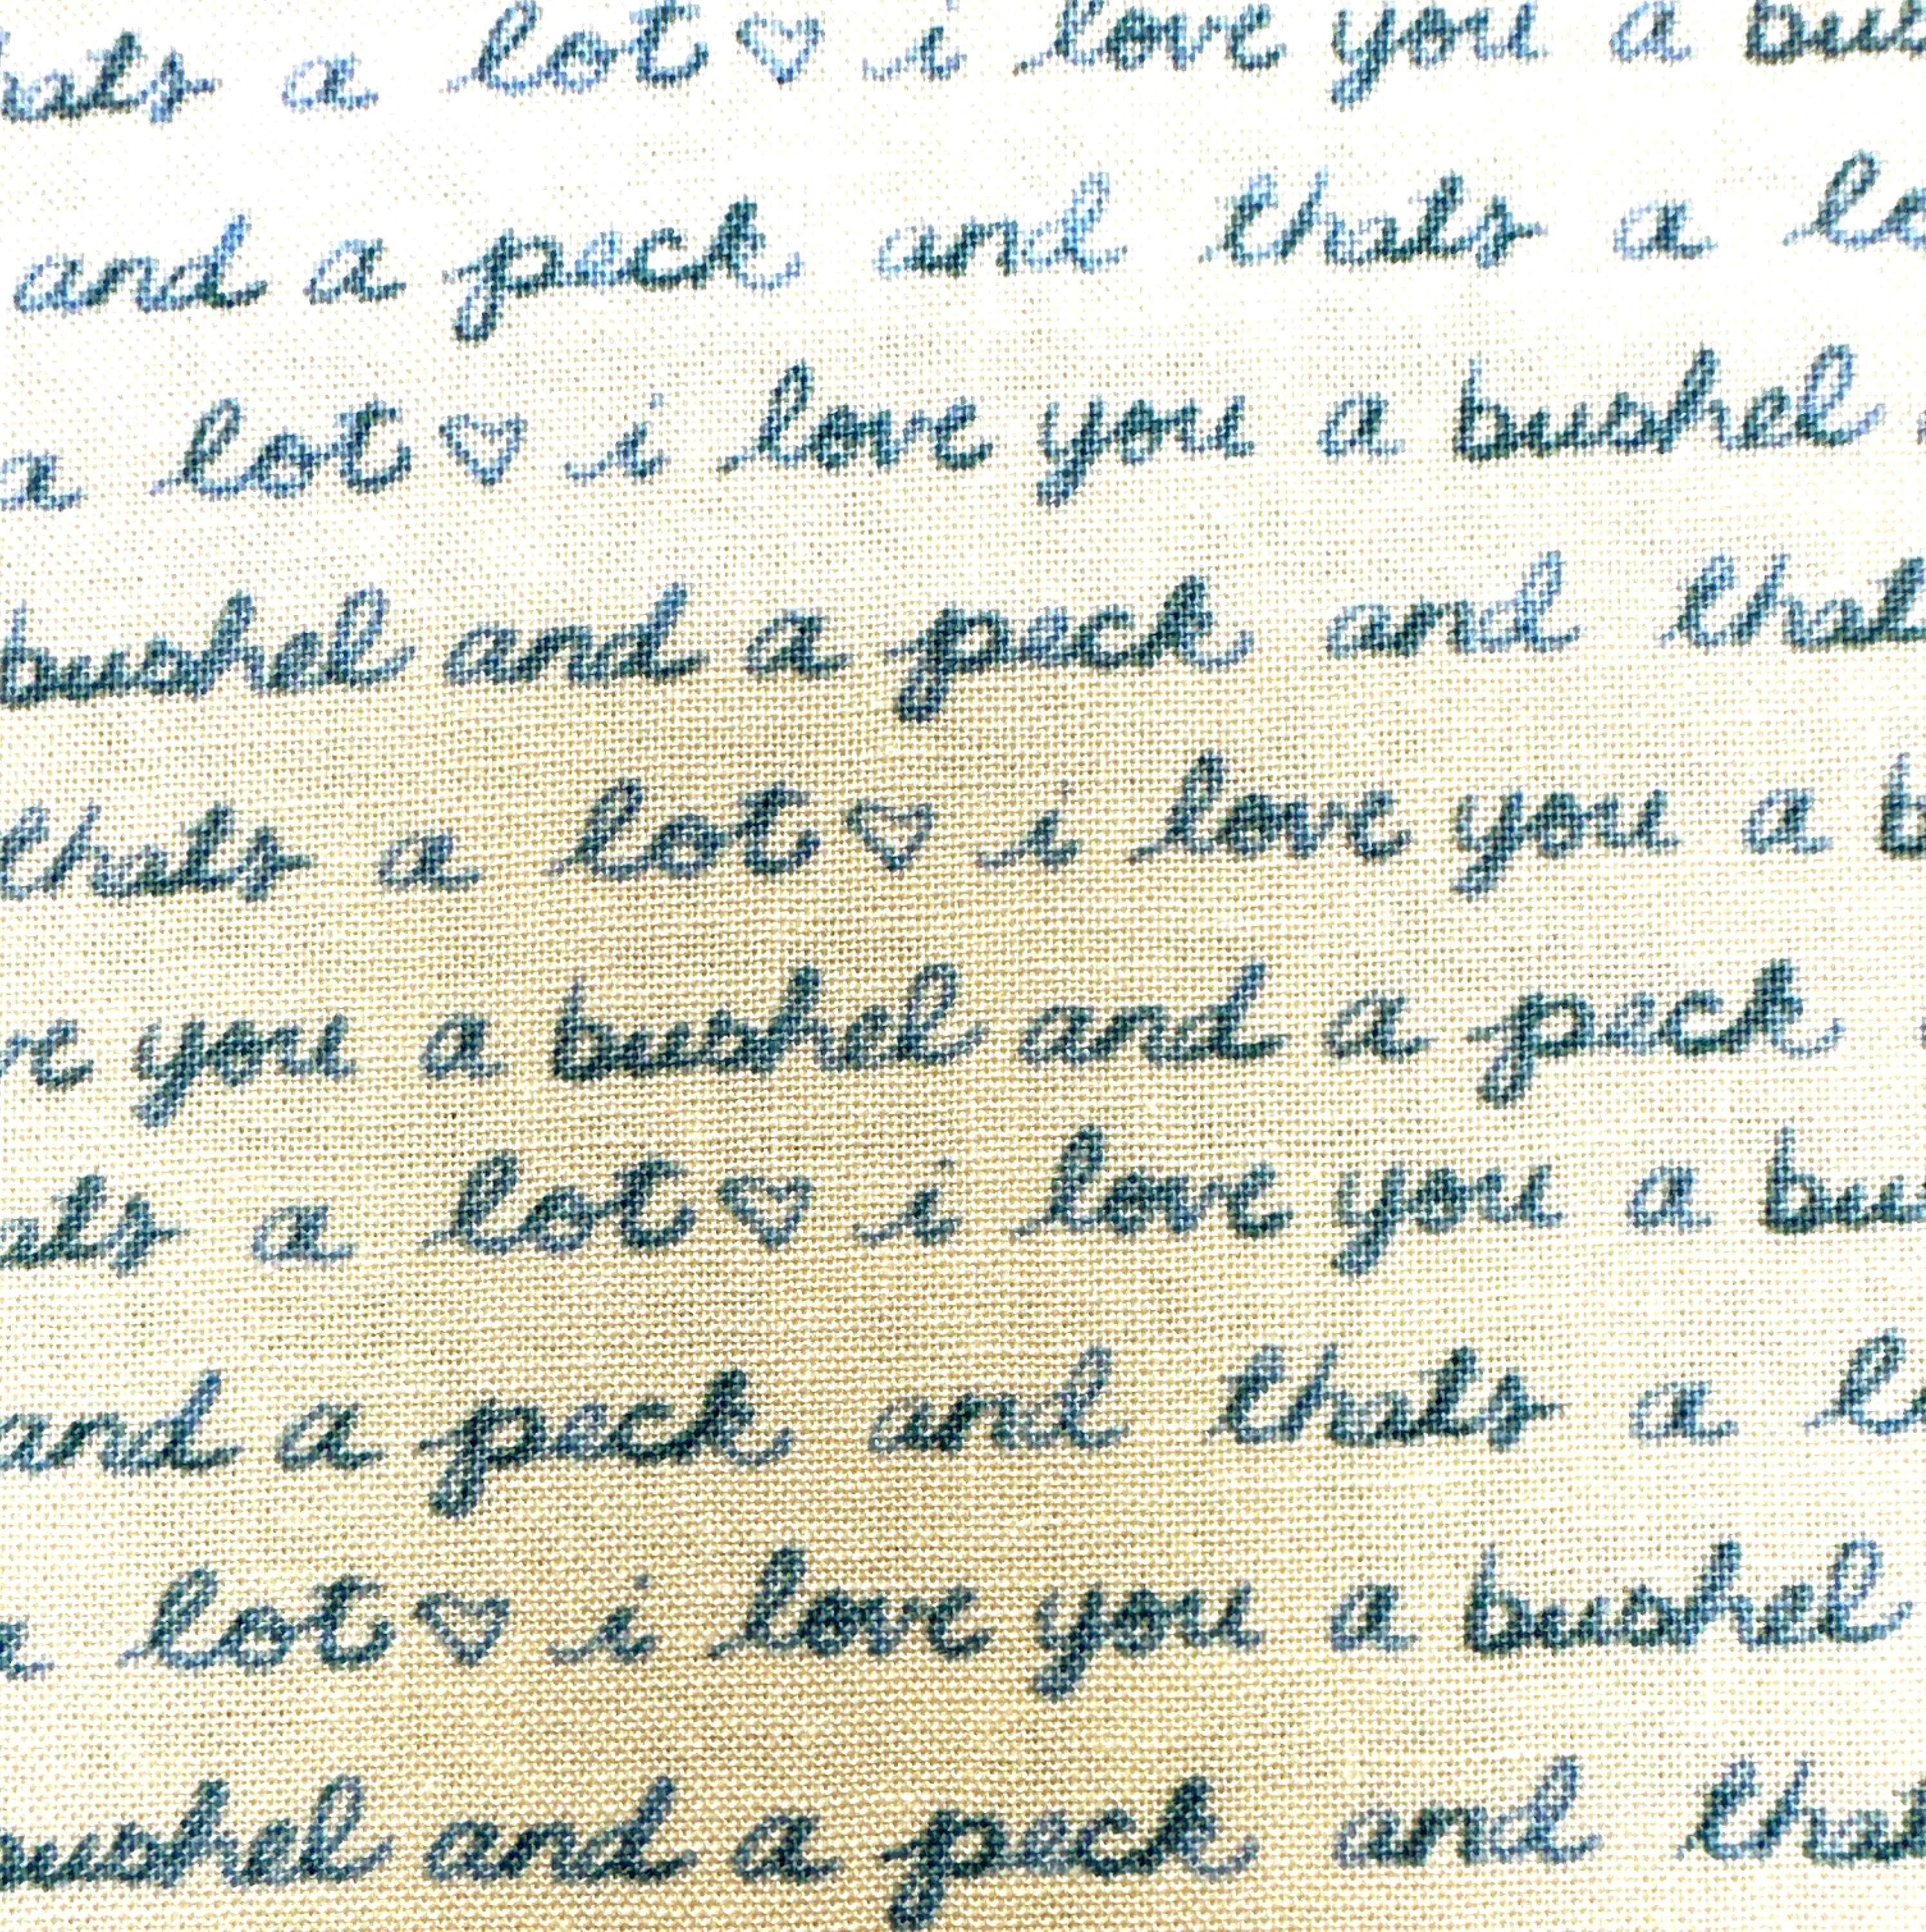 hats a lot♡ i love you a bus
and a peck and thats a lo
a lot♡ i love you a bushel
bushel and a peck and that
thats a lot♡ i love you a b
ve you a bushel and a peck
ats a lot♡ i love you a bus
and a peck and thats a lo
a lot♡ i love you a bushel
bushel and a peck and that